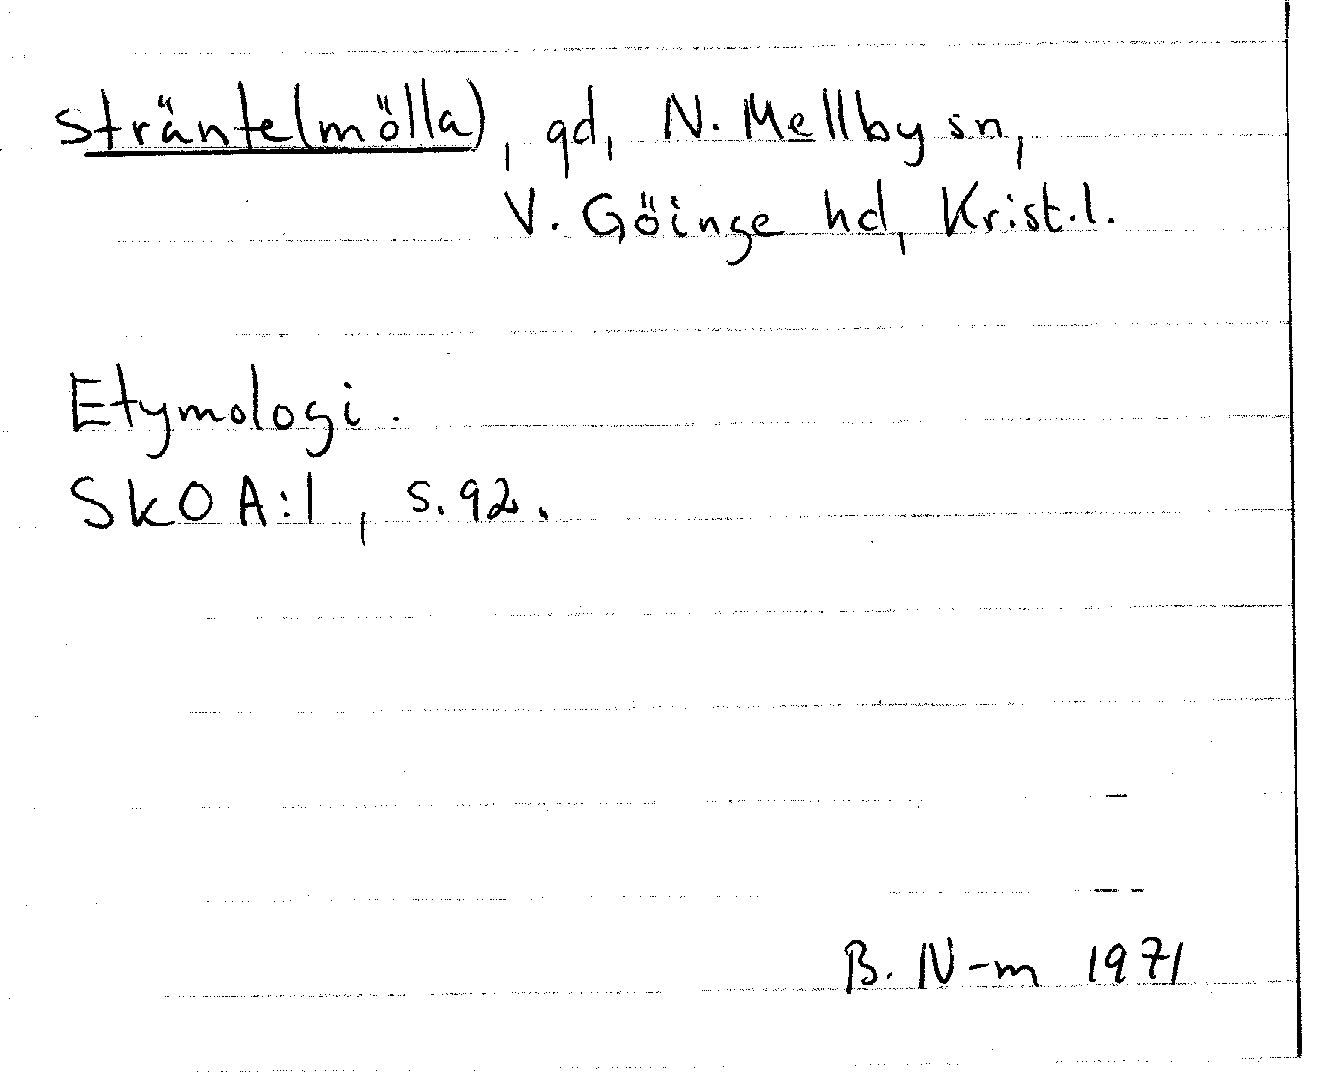 Sträntelmölla), gd, N. Mellby sn,
V. Göinge hd, Krist.l.
Etymologi.
SkO A:1, s.92.
B. N-m 1971